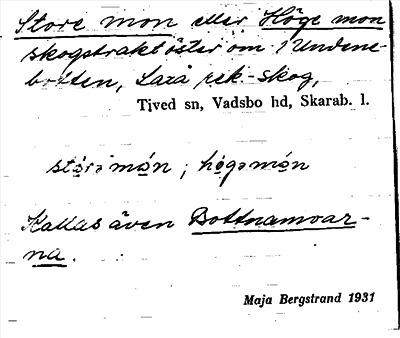 Store mon eller Höge mon
skogstrakt öster om Undene-
botten, Laxå rek.-skog,
Tived sn, Vadsbo hd, Skarab. l.
störə mòn ; högə mòn
Kallas även Bottnamoar-
na.
Maja Bergstrand 1931